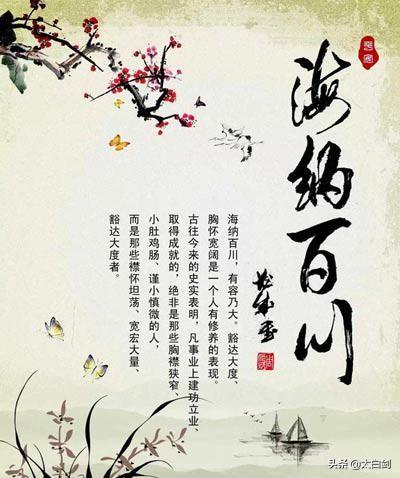 海纳百川
海纳百川，有容乃大。豁达大度、
胸怀宽阔是一个人有修养的表现。
古往今来的史实表明，凡事业上建功立业、
取得成就的，绝非是那些胸襟狭窄、
小肚鸡肠、谨小慎微的人，
而是那些襟怀坦荡、宽宏大量、
豁达大度者。
头条@太白剑